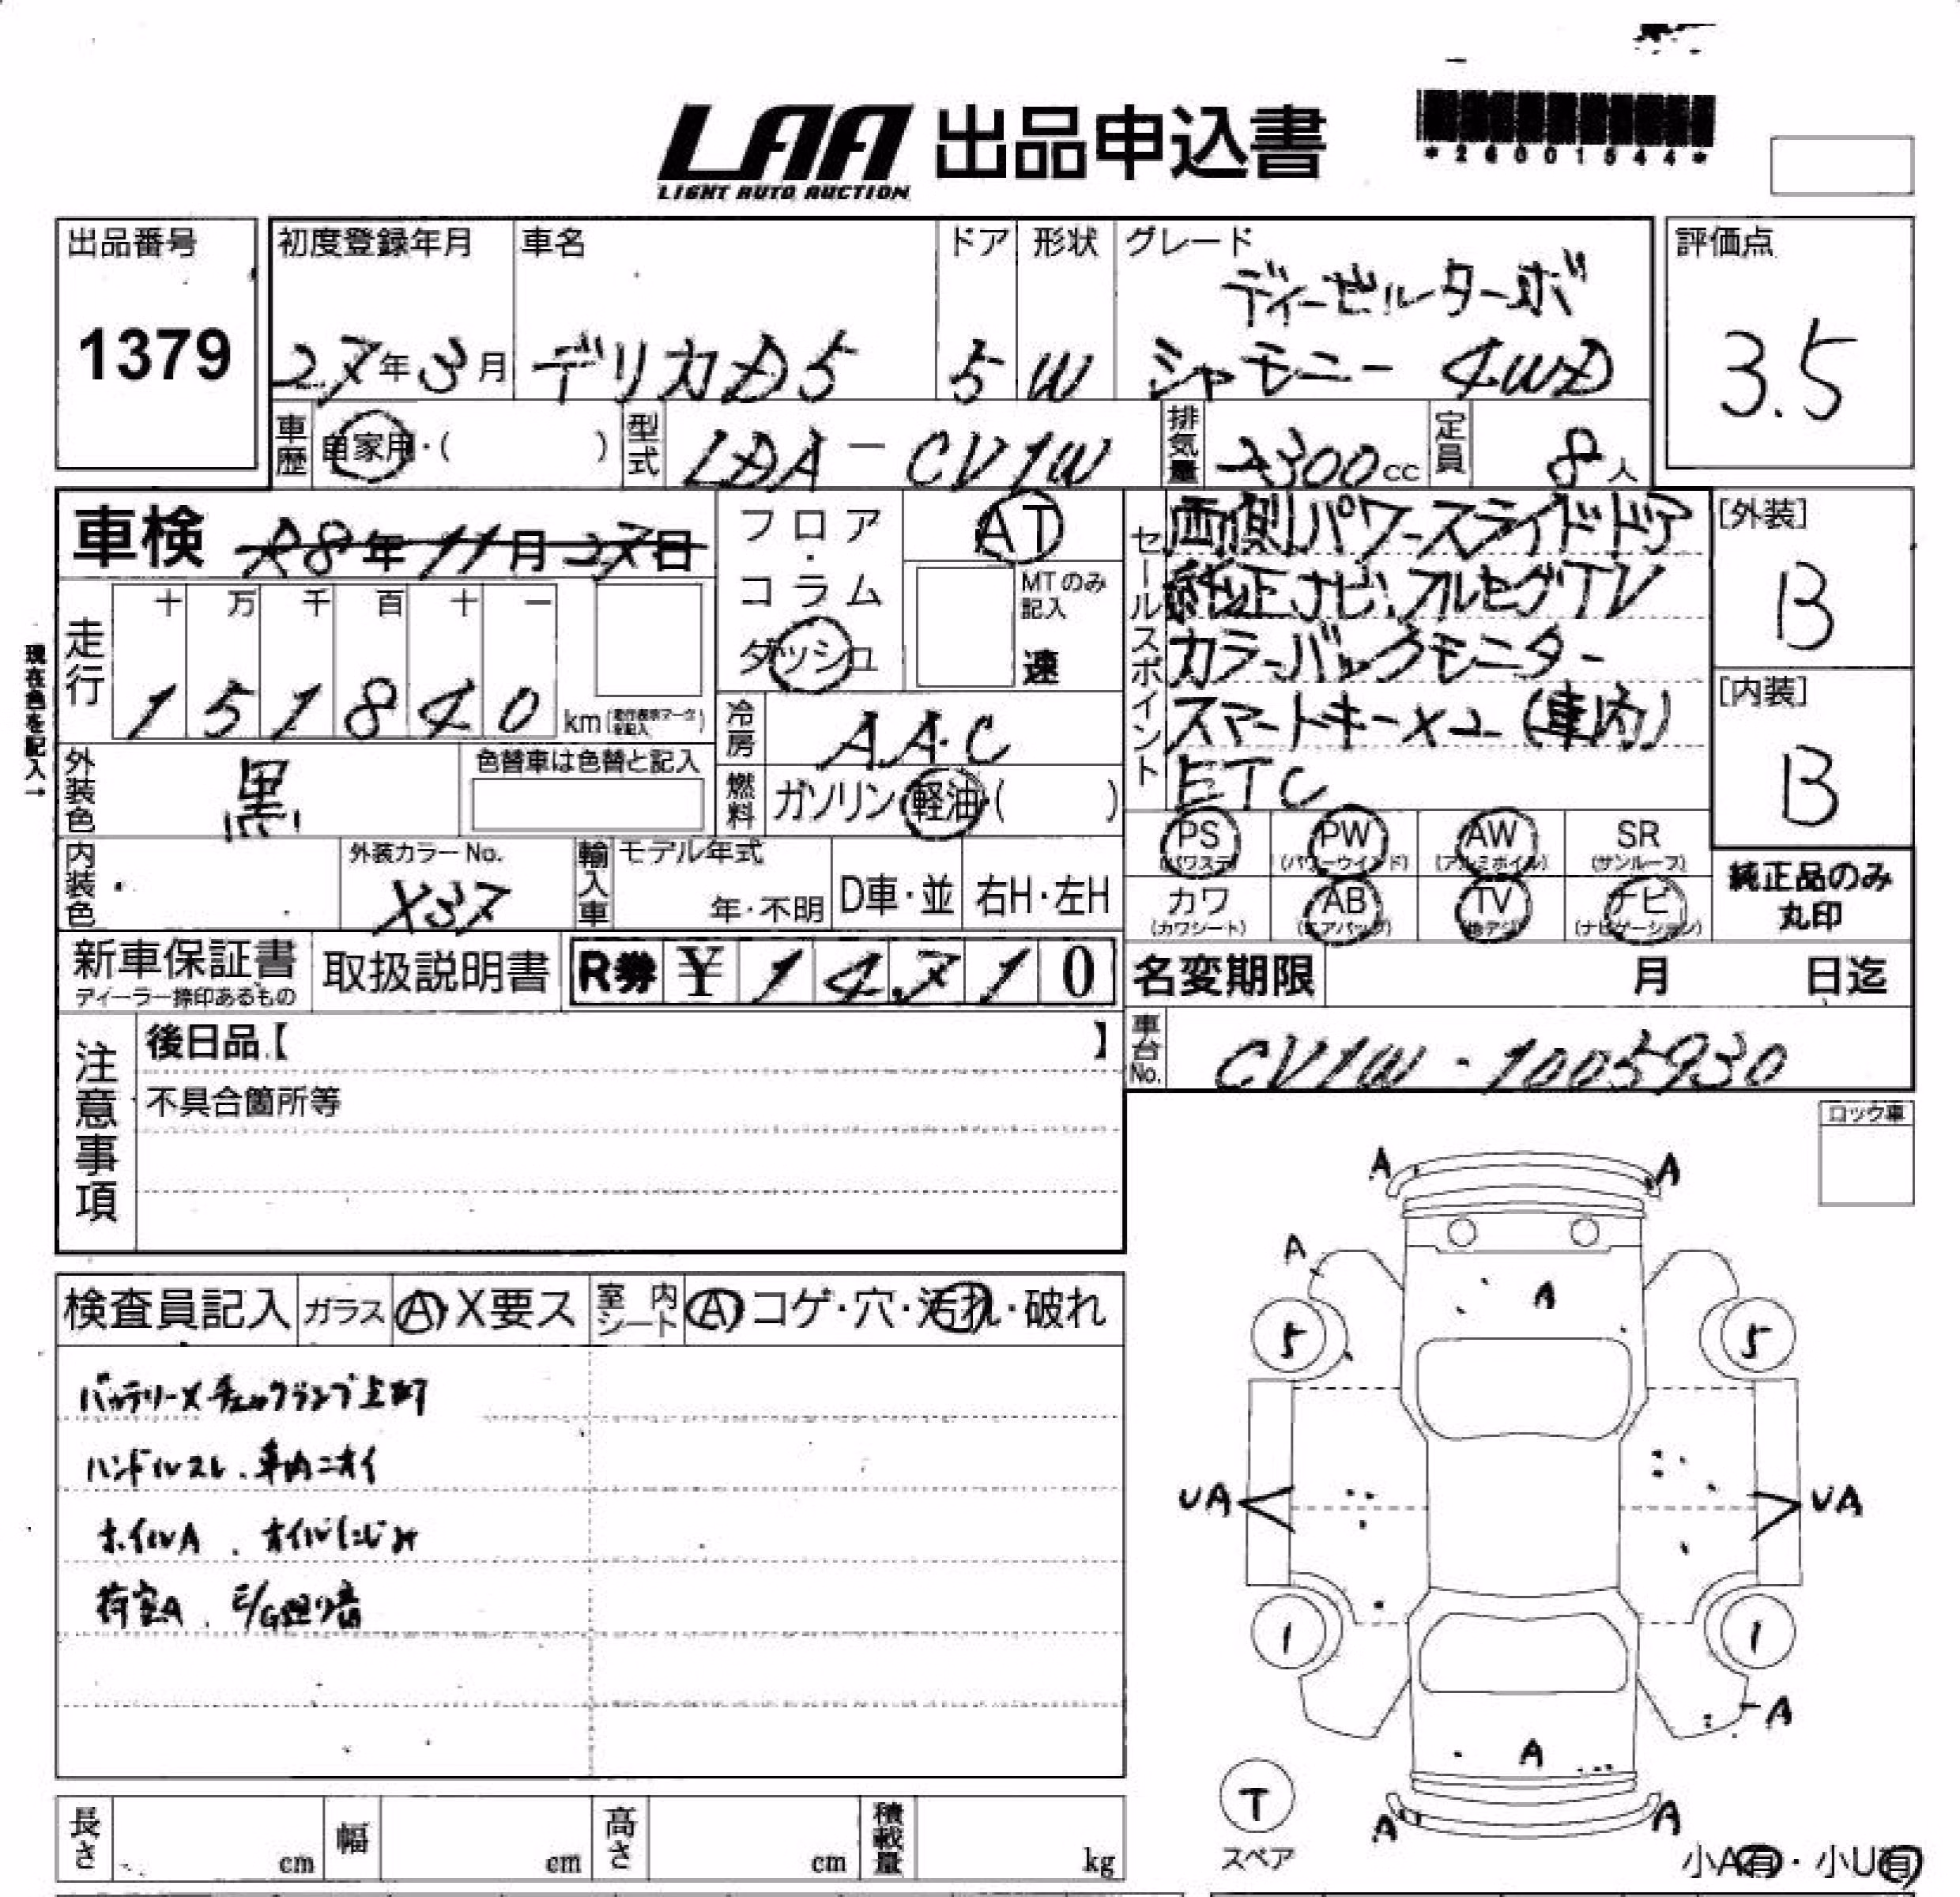 LAA 出品申込書
LIGHT AUTO AUCTION
*26001544*
出品番号
1379
初度登録年月
27年3月
車名
デリカD5
ドア
5
形状
W
グレード
ディーゼルターボ
シャモニー 4WD
評価点
3.5
車歴
自家用・( )
型式
LDA-CV1W
排気量
2300cc
定員
8人
車検 R8年11月27日
フロア・コラム
ダッシュ
AT
MTのみ記入
速
セールスポイント
両側パワースライドドア
純正ナビ.フルセグTV
カラーバックモニター
スマートキー×2(車内)
ETC
[外装]
B
[内装]
B
現在色を記入→
走行
十 万 千 百 十 一
1 5 1 8 4 0 km
冷房
AAC
外装色
黒
色替車は色替と記入
燃料
ガソリン・軽油・( )
PS (パワステ)
PW (パワーウインド)
AW (アルミホイル)
SR (サンルーフ)
カワ (カワシート)
AB (エアバッグ)
TV (地デジ)
ナビ (ナビゲーション)
純正品のみ
丸印
内装色
外装カラーNo.
X37
輸入車
モデル年式
年・不明
D車・並
右H・左H
新車保証書
ディーラー捺印あるもの
取扱説明書
R券 ¥ 1 4,7 1 0
名変期限 月 日迄
車台No.
CV1W-1005930
注意事項
後日品【 】
不具合箇所等
ロック車
検査員記入
ガラス
A・X要ス
室内シート
A・コゲ・穴・汚れ・破れ
バッテリーX チェックランプ点灯
ハンドルスレ.車内ニオイ
ホイルA . オイルにじみ
荷室A . E/G廻り音
A A
A
A
5 5
UA UA
1 1
A
A
T
スペア
A A
小A有・小U有
長さ cm
幅 cm
高さ cm
積載量 kg